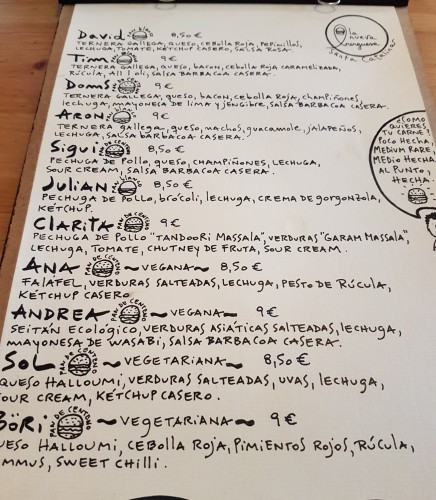 David PAN BLANCO 8,50€
TERNERA GALLEGA, QUESO, CEBOLLA ROJA, PEPINILLOS,
LECHUGA, TOMATE, KETCHUP CASERO, SALSA ROSA.
Tim 9€
TERNERA GALLEGA, QUESO, BACON, CEBOLLA ROJA CARAMELIZADA,
RÚCULA, ALL I OLI, SALSA BARBACOA CASERA.
DomS 9€
TERNERA GALLEGA, QUESO, BACON, CEBOLLA ROJA, CHAMPIÑONES,
LECHUGA, MAYONESA DE LIMA Y JENGIBRE, SALSA BARBACOA CASERA.
ARON 9€
TERNERA GALLEGA, QUESO, NACHOS, GUACAMOLE, JALAPEÑOS,
LECHUGA, SALSA BARBACOA CASERA.
Sigui 8,50€
PECHUGA DE POLLO, QUESO, CHAMPIÑONES, LECHUGA,
SOUR CREAM, SALSA BARBACOA CASERA.
Julian PAN BLANCO 8,50€
PECHUGA DE POLLO, BRÓCOLI, LECHUGA, CREMA DE GORGONZOLA,
KETCHUP.
CLARITA PAN DE CENTENO 9€
PECHUGA DE POLLO "TANDOORI MASSALA", VERDURAS "GARAM MASSALA",
LECHUGA, TOMATE, CHUTNEY DE FRUTA, SOUR CREAM.
ANA PAN DE CENTENO ~VEGANA~ 8,50€
FALAFEL, VERDURAS SALTEADAS, LECHUGA, PESTO DE RÚCULA,
KETCHUP CASERO.
ANDREA PAN DE CENTENO ~VEGANA~ 9€
SEITÁN ECOLÓGICO, VERDURAS ASIÁTICAS SALTEADAS, LECHUGA,
MAYONESA DE WASABI, SALSA BARBACOA CASERA.
SOL PAN DE CENTENO ~VEGETARIANA~ 8,50€
QUESO HALLOUMI, VERDURAS SALTEADAS, UVAS, LECHUGA,
SOUR CREAM, KETCHUP CASERO.
BÖRI PAN DE CENTENO ~VEGETARIANA~ 9€
UESO HALLOUMI, CEBOLLA ROJA, PIMIENTOS ROJOS, RÚCULA,
MMUS, SWEET CHILLI.
la
nueva
burguesa
Santa Catalina
¿CÓMO
QUIERES
TU CARNE?
POCO HECHA,
MEDIUM RARE,
MEDIO HECHA,
AL PUNTO,
HECHA